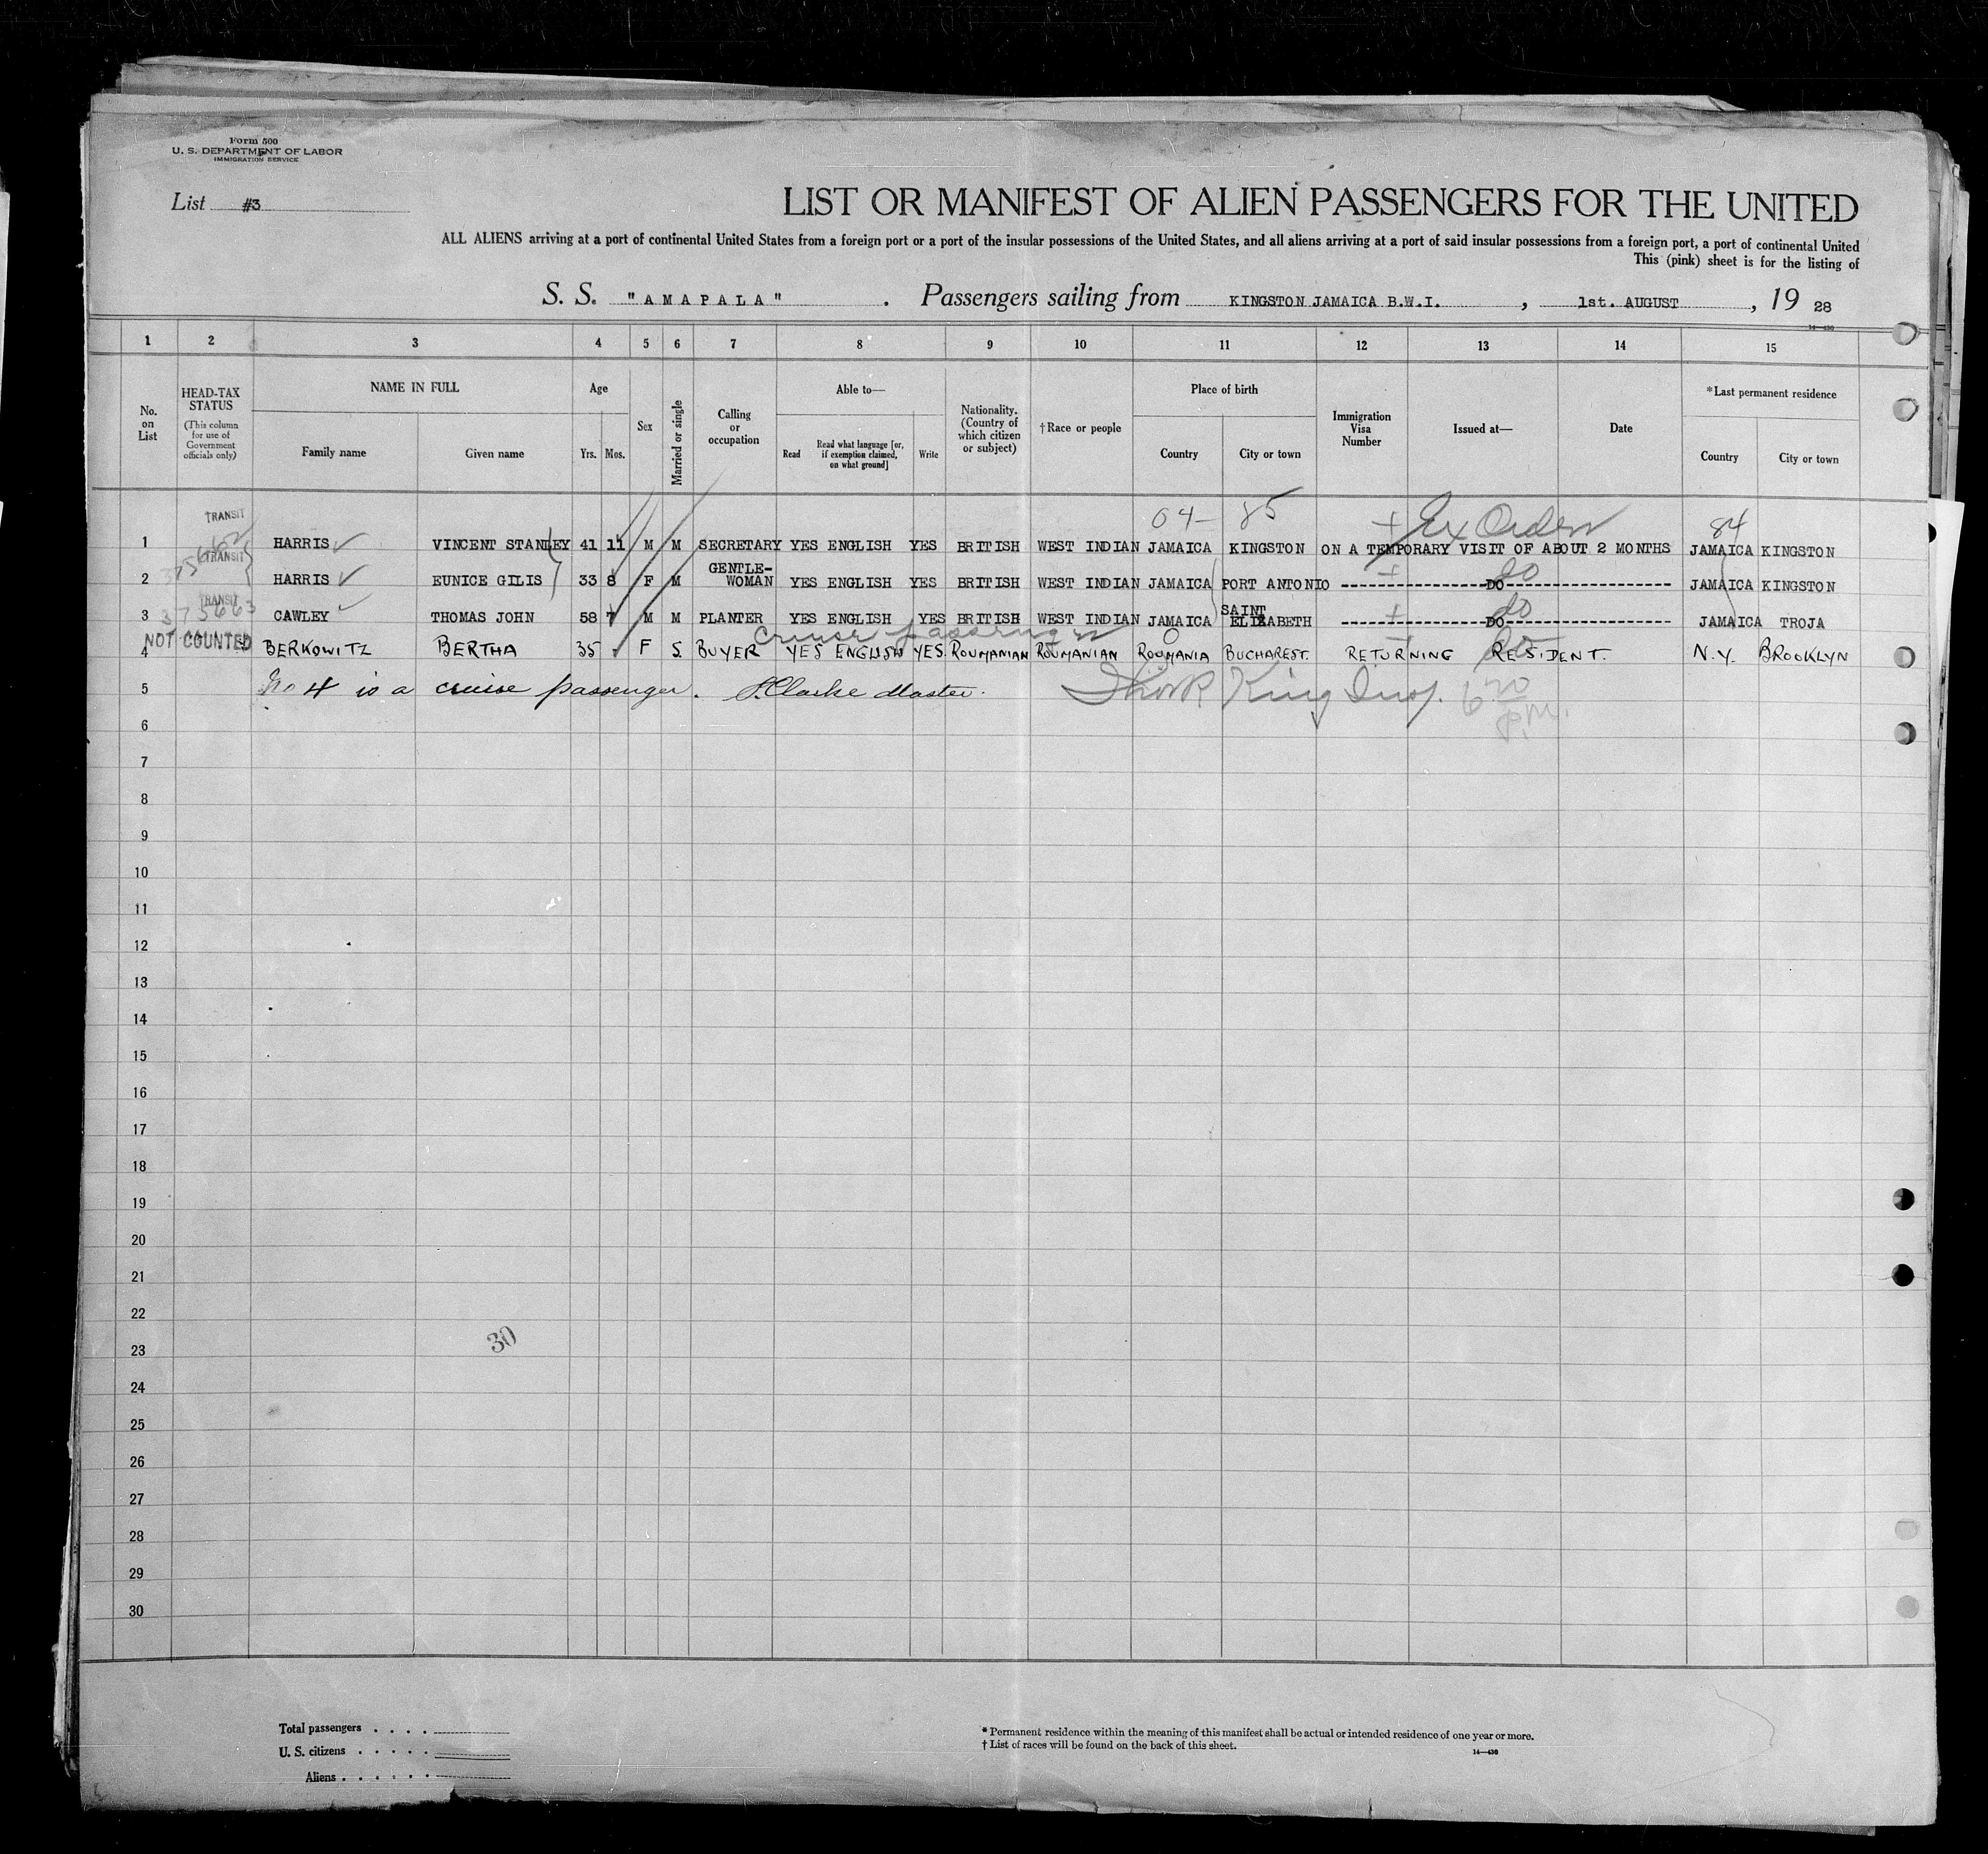 Form 500
U. S. DEPARTMENT OF LABOR
IMMIGRATION SERVICE
List #3
LIST OR MANIFEST OF ALIEN PASSENGERS FOR THE UNITED
ALL ALIENS arriving at a port of continental United States from a foreign port or a port of the insular possessions of the United States, and all aliens arriving at a port of said insular possessions from a foreign port, a port of continental United
This (pink) sheet is for the listing of
S. S. "AMAPALA" . Passengers sailing from KINGSTON JAMAICA B.W.I. , 1st. AUGUST , 19 28
14—430
1 2 3 4 5 6 7 8 9 10 11 12 13 14 15
No. on List
HEAD-TAX STATUS
(This column for use of Government officials only)
NAME IN FULL
Family name Given name
Age
Yrs. Mos.
Sex
Married or single
Calling or occupation
Able to—
Read
Read what language [or, if exemption claimed, on what ground]
Write
Nationality. (Country of which citizen or subject)
†Race or people
Place of birth
Country City or town
Immigration Visa Number
Issued at—
Date
*Last permanent residence
Country City or town
TRANSIT 04- 85 Ex Order 84
1 TRANSIT HARRIS VINCENT STANLEY 41 11 M M SECRETARY YES ENGLISH YES BRITISH WEST INDIAN JAMAICA KINGSTON ON A TEMPORARY VISIT OF ABOUT 2 MONTHS JAMAICA KINGSTON
2 HARRIS EUNICE GILIS 33 8 F M GENTLE-WOMAN YES ENGLISH YES BRITISH WEST INDIAN JAMAICA PORT ANTONIO DO do JAMAICA KINGSTON
TRANSIT
3 375663 CAWLEY THOMAS JOHN 58 7 M M PLANTER YES ENGLISH YES BRITISH WEST INDIAN JAMAICA SAINT ELIZABETH DO do JAMAICA TROJA
NOT COUNTED cruise passenger
4 BERKOWITZ BERTHA 35 - F S. BUYER YES ENGLISH YES. ROUMANIAN ROUMANIAN ROUMANIA BUCHAREST. RETURNING RESIDENT. N.Y. BROOKLYN
5 No 4 is a cruise passenger. Clarke Master. King Insp. 6 20 P.M.
6
7
8
9
10
11
12
13
14
15
16
17
18
19
20
21
22
23 30
24
25
26
27
28
29
30
Total passengers . . . .
U. S. citizens . . . . .
Aliens . . . . . .
* Permanent residence within the meaning of this manifest shall be actual or intended residence of one year or more.
† List of races will be found on the back of this sheet.
14—430